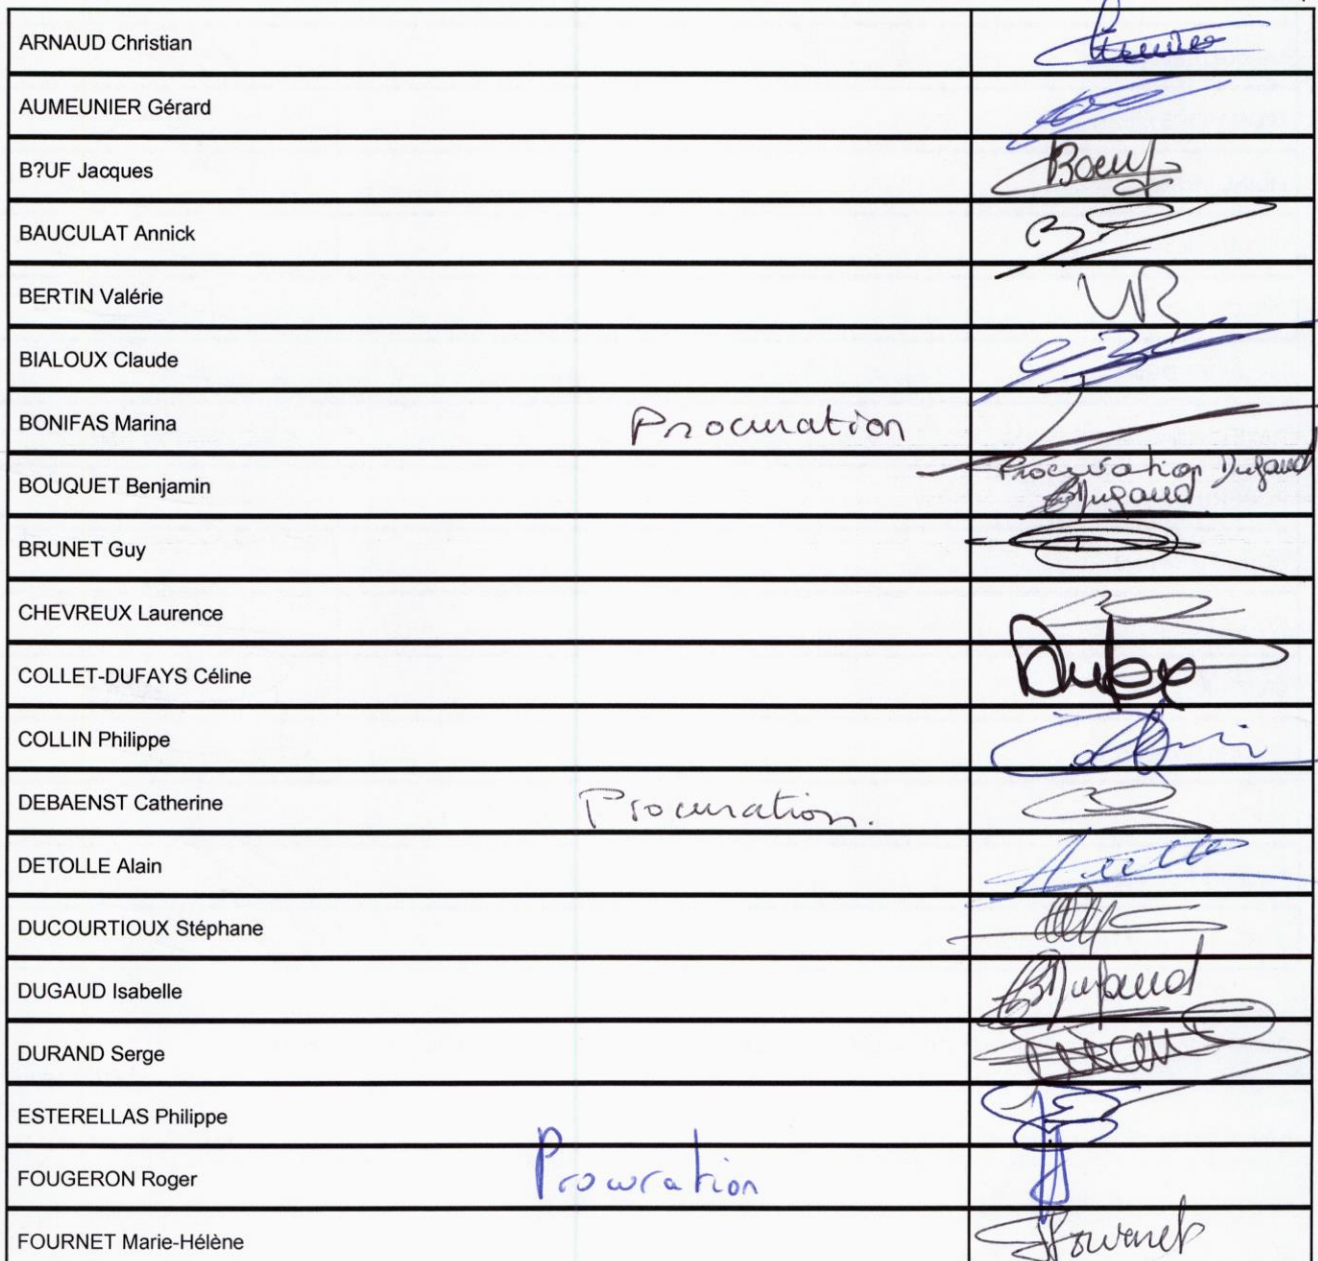 ARNAUD Christian
AUMEUNIER Gérard
B?UF Jacques Boeuf
BAUCULAT Annick
BERTIN Valérie VB
BIALOUX Claude
BONIFAS Marina Procuration
BOUQUET Benjamin Procuration Dugaud
Dugaud
BRUNET Guy
CHEVREUX Laurence
COLLET-DUFAYS Céline
COLLIN Philippe Collin
DEBAENST Catherine Procuration.
DETOLLE Alain
DUCOURTIOUX Stéphane
DUGAUD Isabelle Dugaud
DURAND Serge
ESTERELLAS Philippe
FOUGERON Roger Procuration
FOURNET Marie-Hélène Fournet